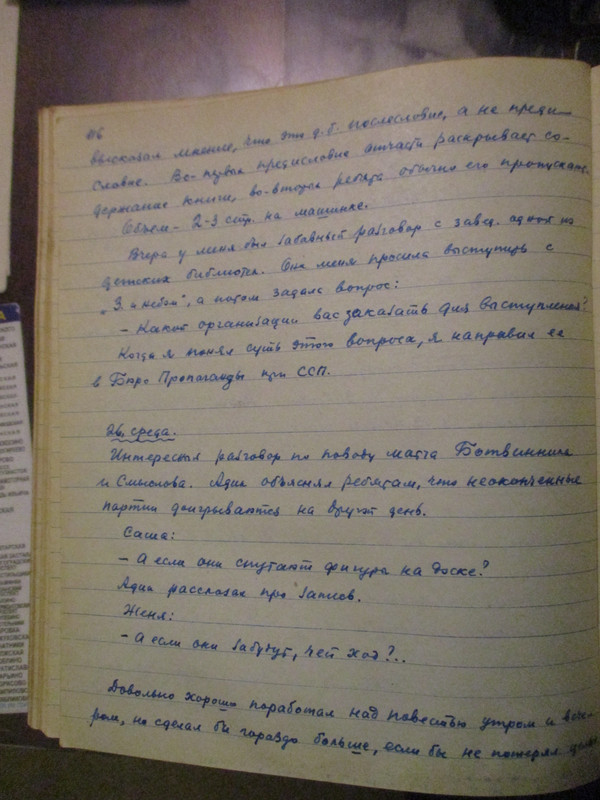 116
высказал мнение, что это д.б. послесловие, а не преди-
словие. Во-первых предисловие отчасти раскрывает со-
держание книги, во-вторых ребята обычно его пропускают.
Объем – 2-3 стр. на машинке.
Вчера у меня был забавный разговор с завед. одной из
детских библиотек. Она меня просила выступить с
„З. и небом", а потом задала вопрос:
– Какой организации вас заказать для выступления?
Когда я понял суть этого вопроса, я направил ее
в Бюро Пропаганды при ССП.
26, среда.
Интересный разговор по поводу матча Ботвинника
и Смыслова. Адик объяснял ребятам, что неоконченные
партии доигрываются на другой день.
Саша:
– А если они спутают фигуры на доске?
Адик рассказал про запись.
Женя:
– А если они забудут, чей ход?..
Довольно хорошо поработал над повестью утром и вече-
ром, но сделал бы гораздо больше, если бы не потерял